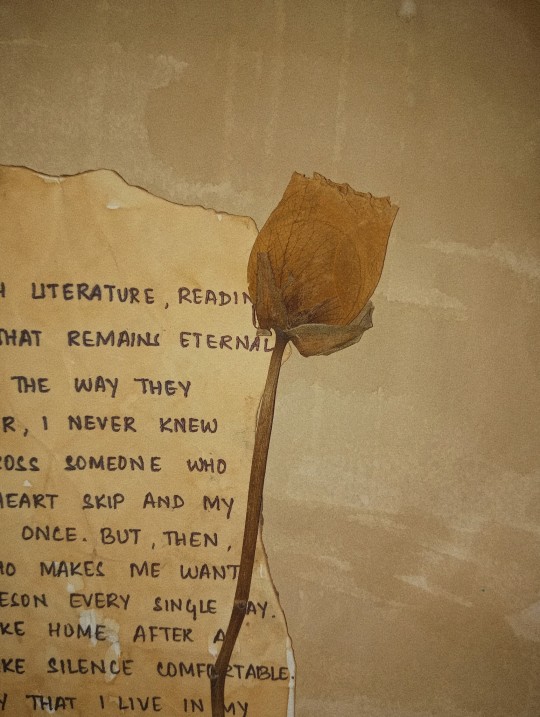 H LITERATURE, READIN
THAT REMAINS ETERNAL
THE WAY THEY
R, I NEVER KNEW
OSS SOMEONE WHO
HEART SKIP AND MY
ONCE. BUT, THEN,
HO MAKES ME WANT
ESON EVERY SINGLE AY.
KE HOME AFTER A
KE SILENCE COMFORTABLE.
Y THAT I LIVE IN MY